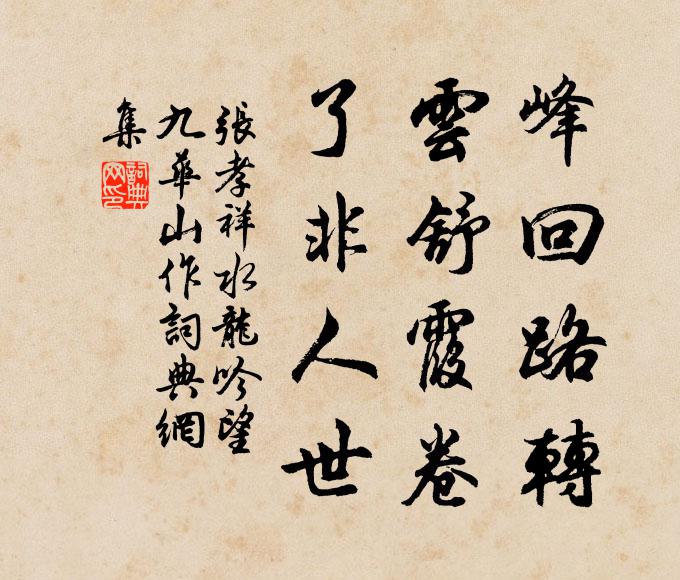 峰回路轉
雲舒霞卷
了非人世
張孝祥水龍吟望
九華山作詞典網
集
詞典
网印